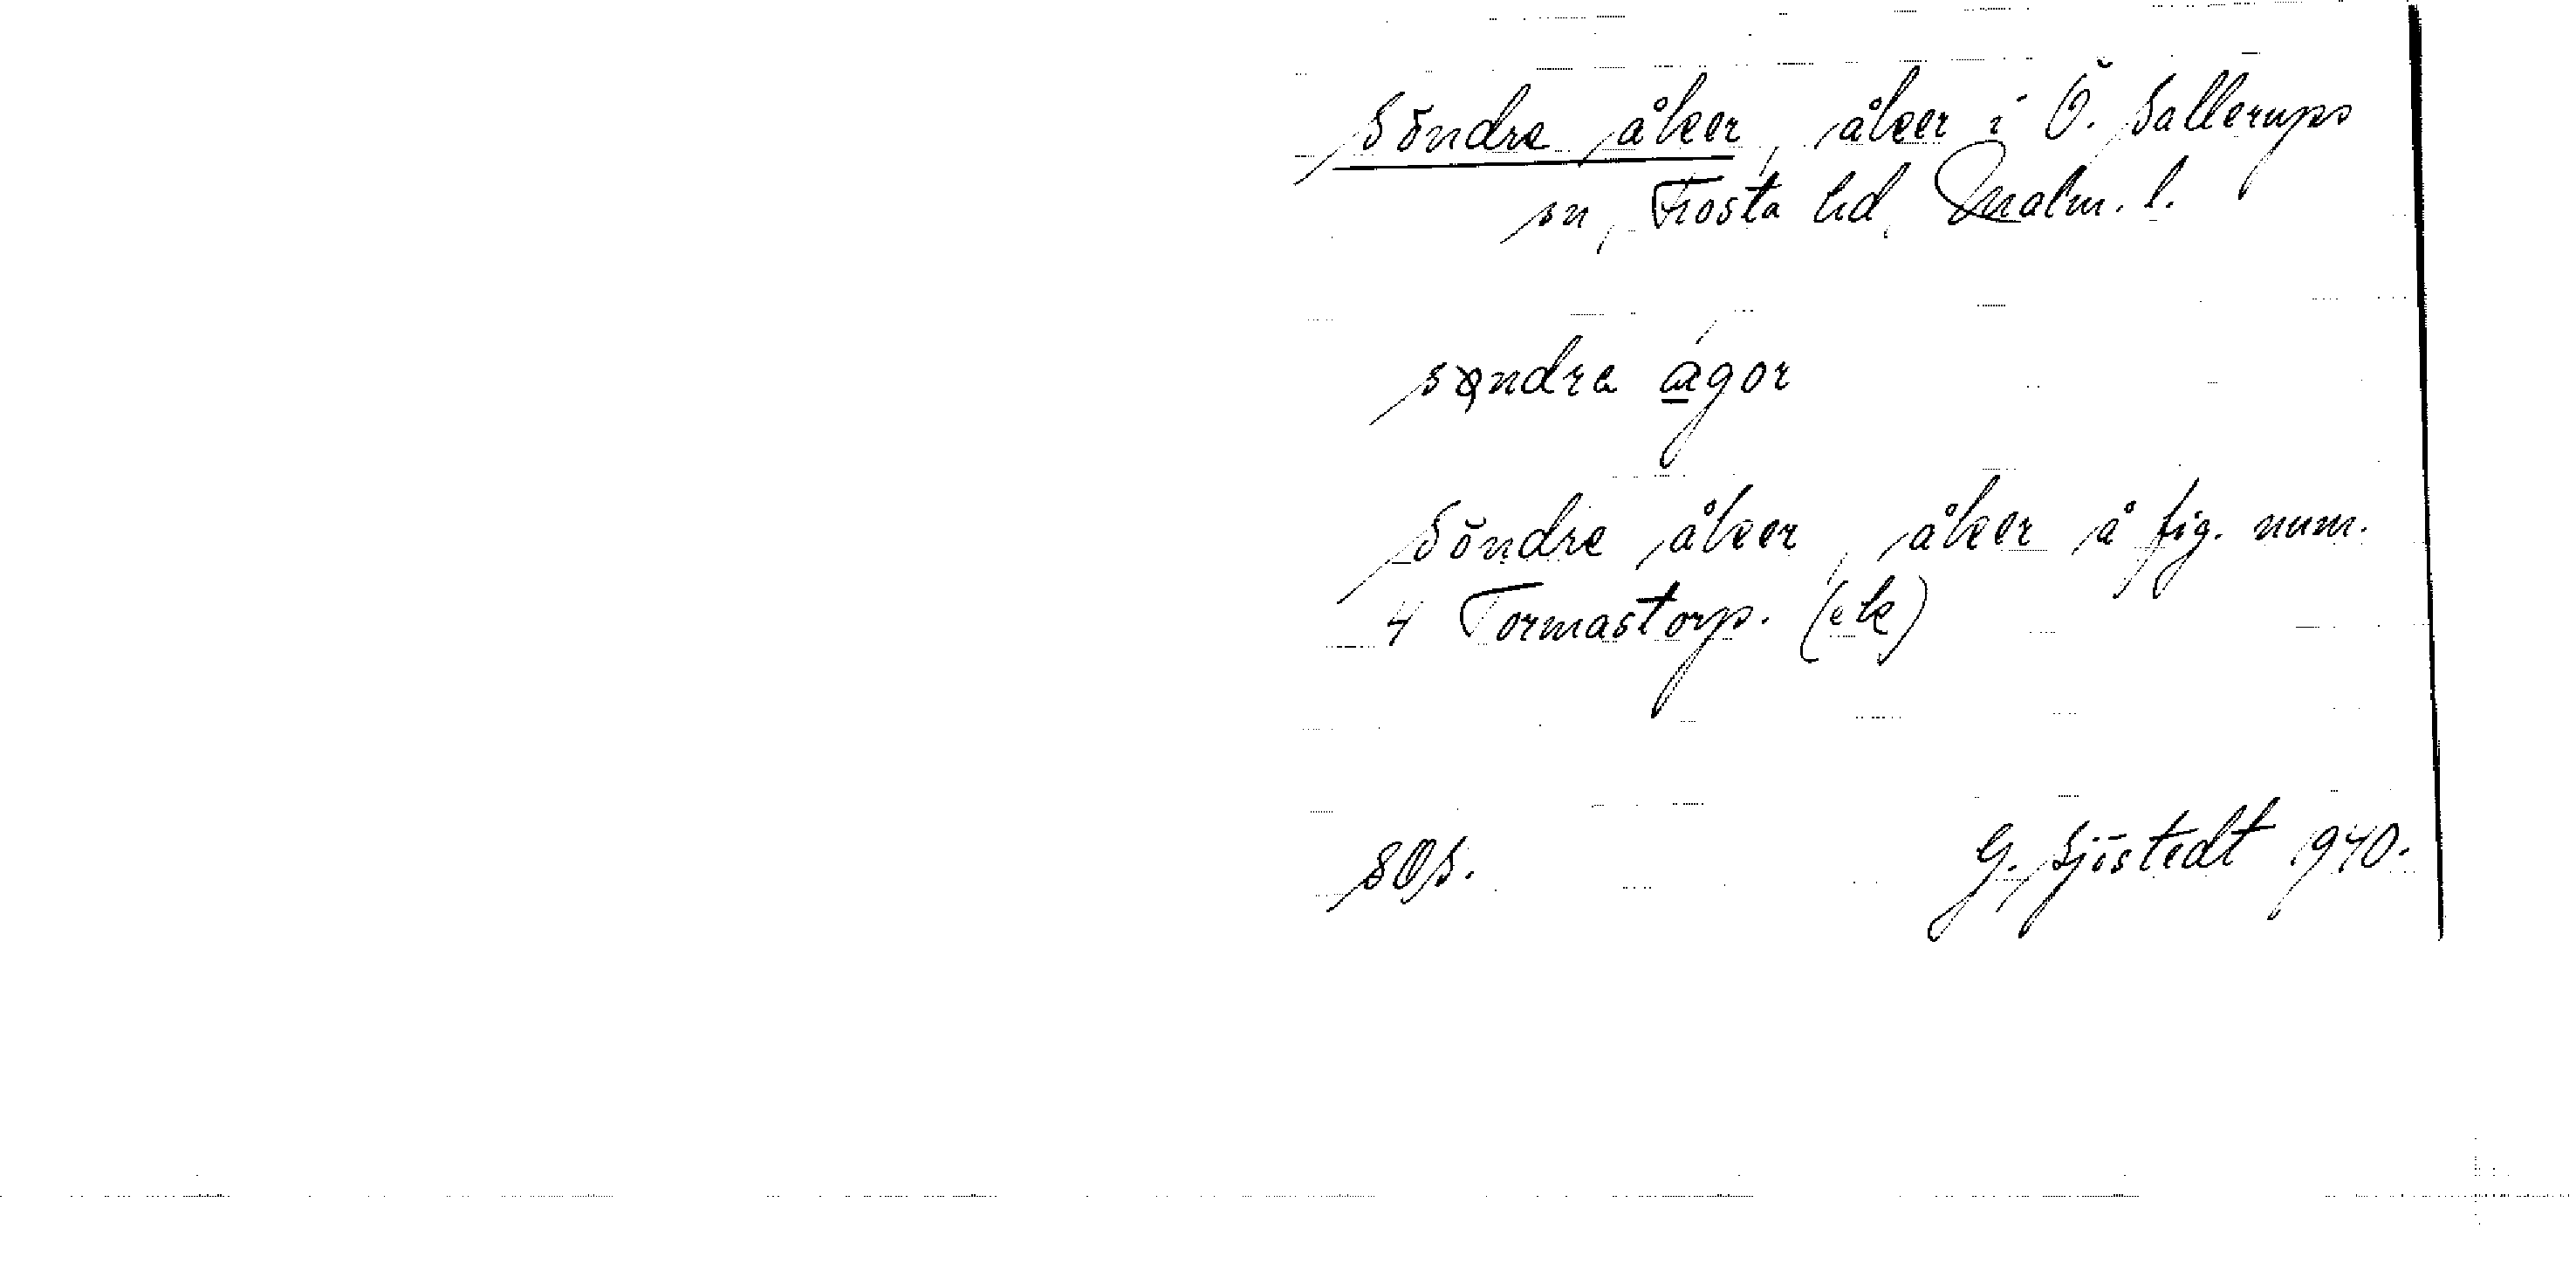 Söndre åker, åker i Ö. Sallerups
sn, Frosta hd, Malm. l.
søndra ágor
Söndre åker, åker å fig. num.
4 Tormastorp. (ek)
SOS. G. Sjöstedt 1940.